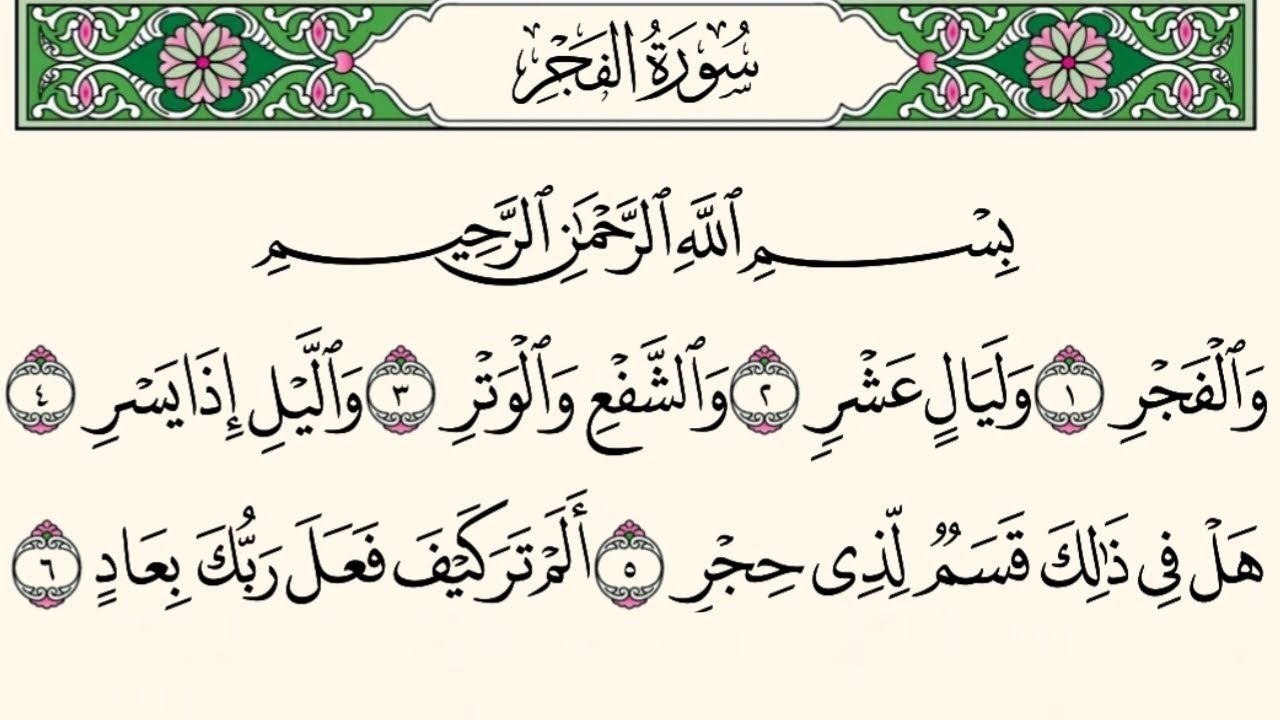 سُورَةُ الفَجْرِ
بِسْمِ ٱللَّهِ ٱلرَّحْمَٰنِ ٱلرَّحِيمِ
وَٱلْفَجْرِ ١ وَلَيَالٍ عَشْرٍ ٢ وَٱلشَّفْعِ وَٱلْوَتْرِ ٣ وَٱلَّيْلِ إِذَا يَسْرِ ٤
هَلْ فِى ذَٰلِكَ قَسَمٌ لِّذِى حِجْرٍ ٥ أَلَمْ تَرَ كَيْفَ فَعَلَ رَبُّكَ بِعَادٍ ٦